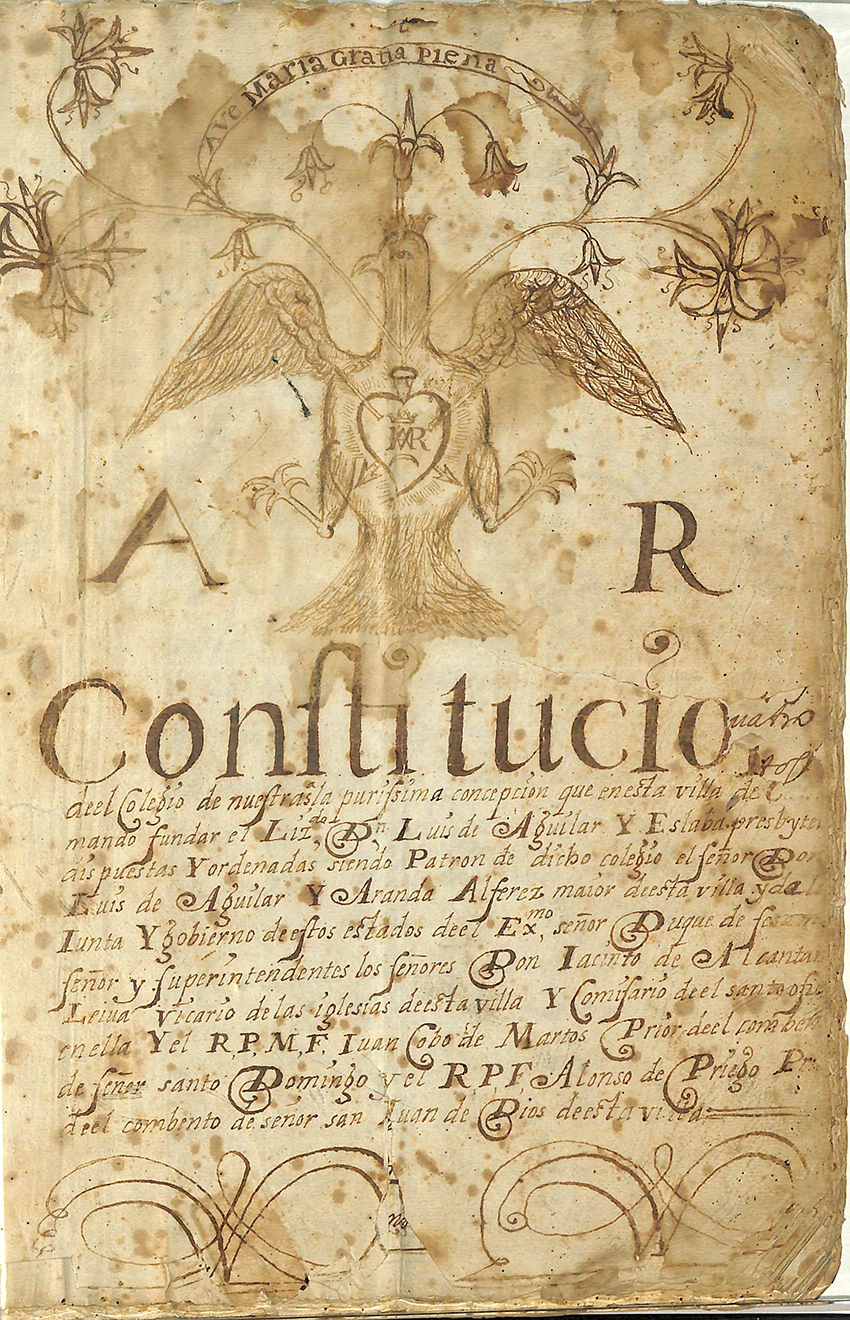 Ave Maria Gratia Plena
MAR
A R
Conſtitucio
deel Colegio de nueſtra sᵃ la puriſsima concepcion que en esta villa de
mando fundar el Lizᵈᵒ Dⁿ Luis de Aguilar Y Eslaba presbyte
dispuestas Y ordenadas siendo Patron de dicho colegio el ſeñor Don
Luis de Aguilar Y Aranda Alferez maior de esta villa y de la
Iunta Y gobierno de eſtos estados deel Exᵐᵒ, señor Duque de
ſeñor y ſuperintendentes los ſeñores Don Iacinto de Alcanta
Leiua vicario de las iglesias deesta villa Y Comiſario deel santo ofi
en ella Y el R. P. M. F. Iuan Cobo de Martos Prior deel comben
de ſeñor santo Domingo y el R P F Alonso de Priego Pr
deel combento de señor san Iuan de Dios deesta villa